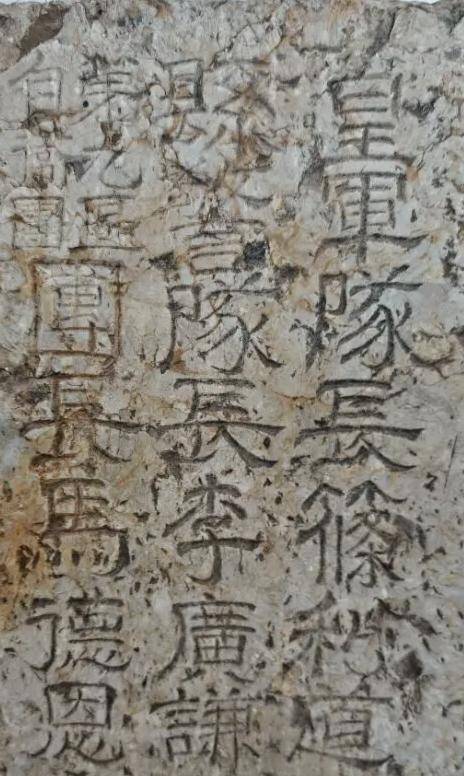 皇軍隊長篠道
警隊長李廣謙
第九區自衛團團長馬德恩